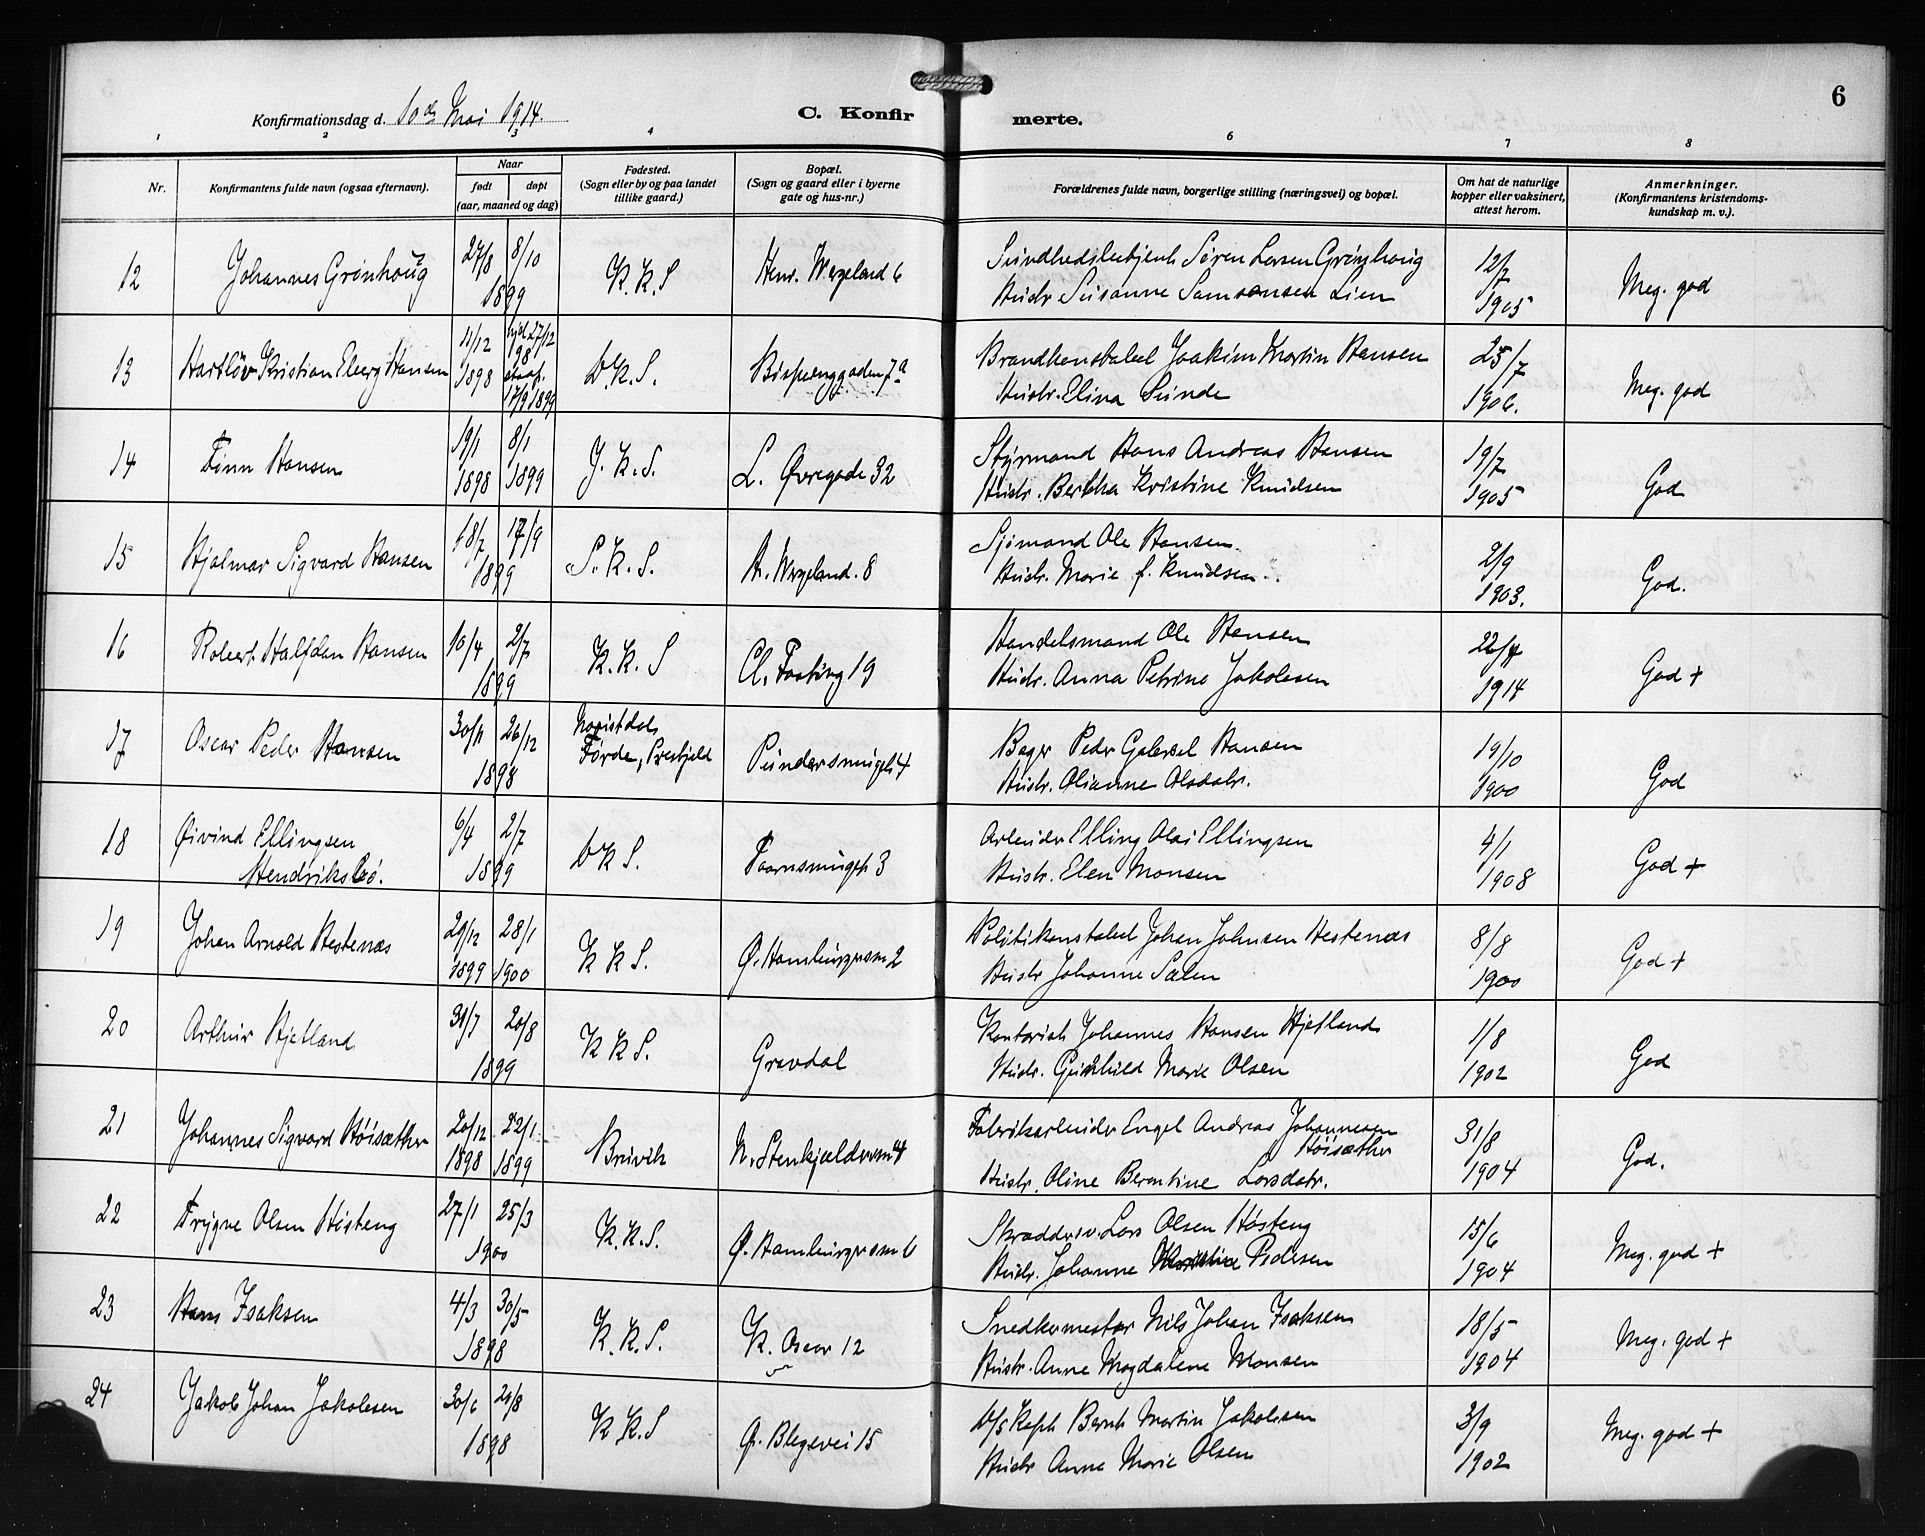 6
Konfirmationsdag d. 10de Mai 1914.
C. Konfirmerte.
1 2 3 4 6 7 8
Nr.
Konfirmantens fulde navn (ogsaa efternavn).
Naar
født døpt
(aar, maaned og dag)
Fødested.
(Sogn eller by og paa landet
tillike gaard.)
Bopæl.
(Sogn og gaard eller i byerne
gate og hus-nr.)
Forældrenes fulde navn, borgerlige stilling (næringsvei) og bopæl.
Om hat de naturlige
kopper eller vaksinert,
attest herom.
Anmerkninger.
(Konfirmantens kristendoms-
kundskap m. v.).
12 Johannes Grønhoug 27/8 8/10 1899 K. K. S Henr. Wergeland 6
Søren Larsen Grønhoug
Hustr. Susanne Samsonsen Lien
12/7 1905 Meg. god
13 Kristian Elberg Hansen 11/12 1898 hjd. 27/12 98 stadf. 17/9 1899 D.K.S. Bispenggaden 7a
Brandkonstabel Joakim Martin Hansen
Hustr. Elina Sunde
25/7 1906. Meg. god
14 Finn Hansen 19/1 1898 8/1 1899 J. K. S. L. Øvregade 32
Styrmand Hans Andreas Hansen
Hustr. Bertha Kristine Knudsen
19/7 1905 God
15 Hjalmar Sigvard Hansen 18/7 17/9 1899 S. K. S. H. Wergeland. 8
Sjømand Ole Hansen
Hustr. Marie f. Knudsen
2/9 1903. God.
16 Robert Halfdan Hansen 10/4 2/7 1899 K. K. S Cl. Fasting 19
Handelsmand Ole Hansen
Hustr. Anna Petrine Jakobsen
22/4 1914 God +
17 Oscar Peder Hansen 30/11 26/12 1898 Førde, Pundersmuget 4
Bager Peder Gabriel Hansen
Hustr. Olianne Olsdatr.
19/10 1900 God
18 Øivind Ellingsen
Hendriksbø. 6/4 2/7 1899 DKS. Taarnsmuget 3
Arbeider Elling Olai Ellingsen
Hustr. Elen Monsen
4/1 1908 God +
19 Johan Arnold Hestenæs 29/12 1899 28/1 1900 K K S. Ø. Hamburgersm 2
Politikonstabel Johan Johnsen Hestenæs
Hustr Johanne Sælen
8/8 1900 God +
20 Arthur Hjetland 31/7 20/8 1899 K K S. Gravdal
Kontorist Johannes Hansen Hjetland
Hustr. Gunhild Marie Olsen
1/8 1902 God
21 Johannes Sigvard Høisæther 20/12 1898 22/1 1899 Bruvik N. Stenkjeldersm 4
Fabrikarbeider Engel Andreas Johannesen
Høisæther
Hustr. Oline Berentine Larsdatr.
31/8 1904 God.
22 Trygve Olsen Høsteng 27/1 25/3 1900 K. K. S. Ø. Hamburgersm 6
Skræddersv. Lars Olsen Høsteng
Hustr. Johanne Pedersen
15/6 1904 Meg. god +
23 Hans Isaksen 4/3 30/5 1898 K. K. S. K. Oscar 12
Snedkermester Nils Johan Isaksen
Hustr. Anne Magdalene Monsen
18/5 1904 Meg. god +
24 Jakob Johan Jakobsen 30/6 21/8 1898 K. K. S Ø. Blegevei 15
D/S Kapt. Bernt Martin Jakobsen
Hustr Anna Marie Olsen
3/9 1902 Meg. god +